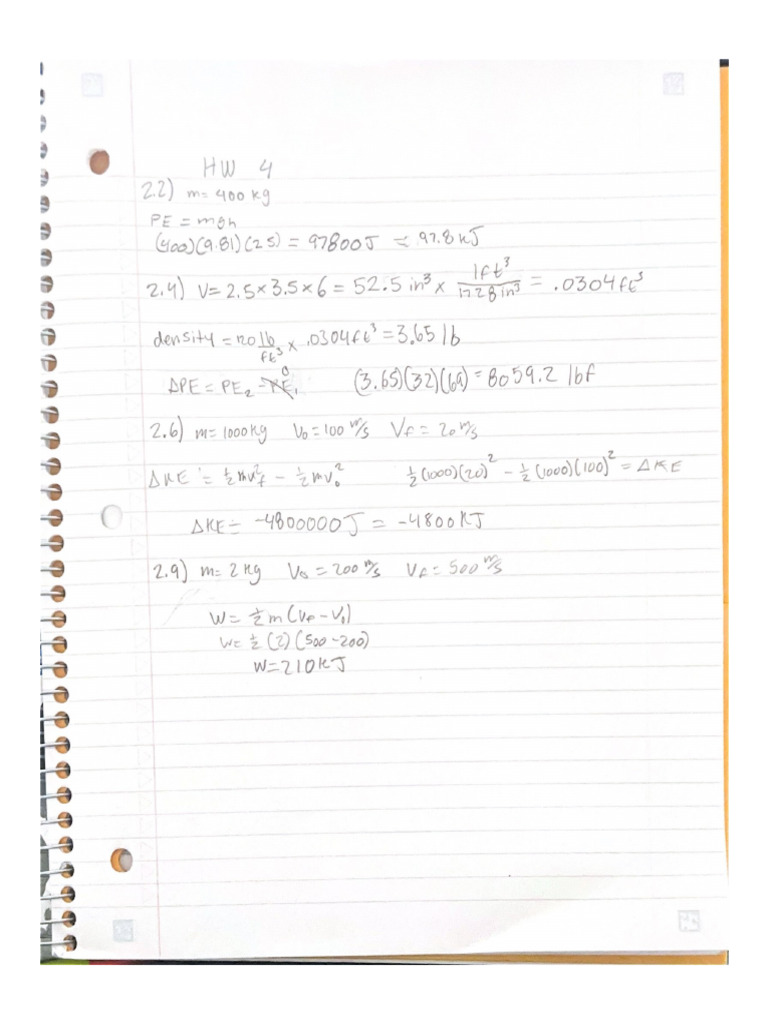 HW 4
2.2) m= 400 kg
PE = mgh
(400)(9.81)(25) = 97800J = 97.8 kJ
2.4) V= 2.5×3.5×6 = 52.5 in³ × 1ft³/1728 in³ = .0304 ft³
density = 120 lb/ft³ × .0304ft³ = 3.65 lb
ΔPE = PE₂ - PE₁ 0 (3.65)(32)(69) = 8059.2 lbf
2.6) m= 1000kg V₀ = 100 m/s Vf = 20 m/s
ΔKE = ½mv²f - ½mv₀² ½(1000)(20)² - ½(1000)(100)² = ΔKE
ΔKE = -4800000J = -4800KJ
2.9) m= 2kg V₀ = 200 m/s Vf = 500 m/s
W = ½m(Vf - V₁)
W= ½(2)(500-200)
W=210KJ